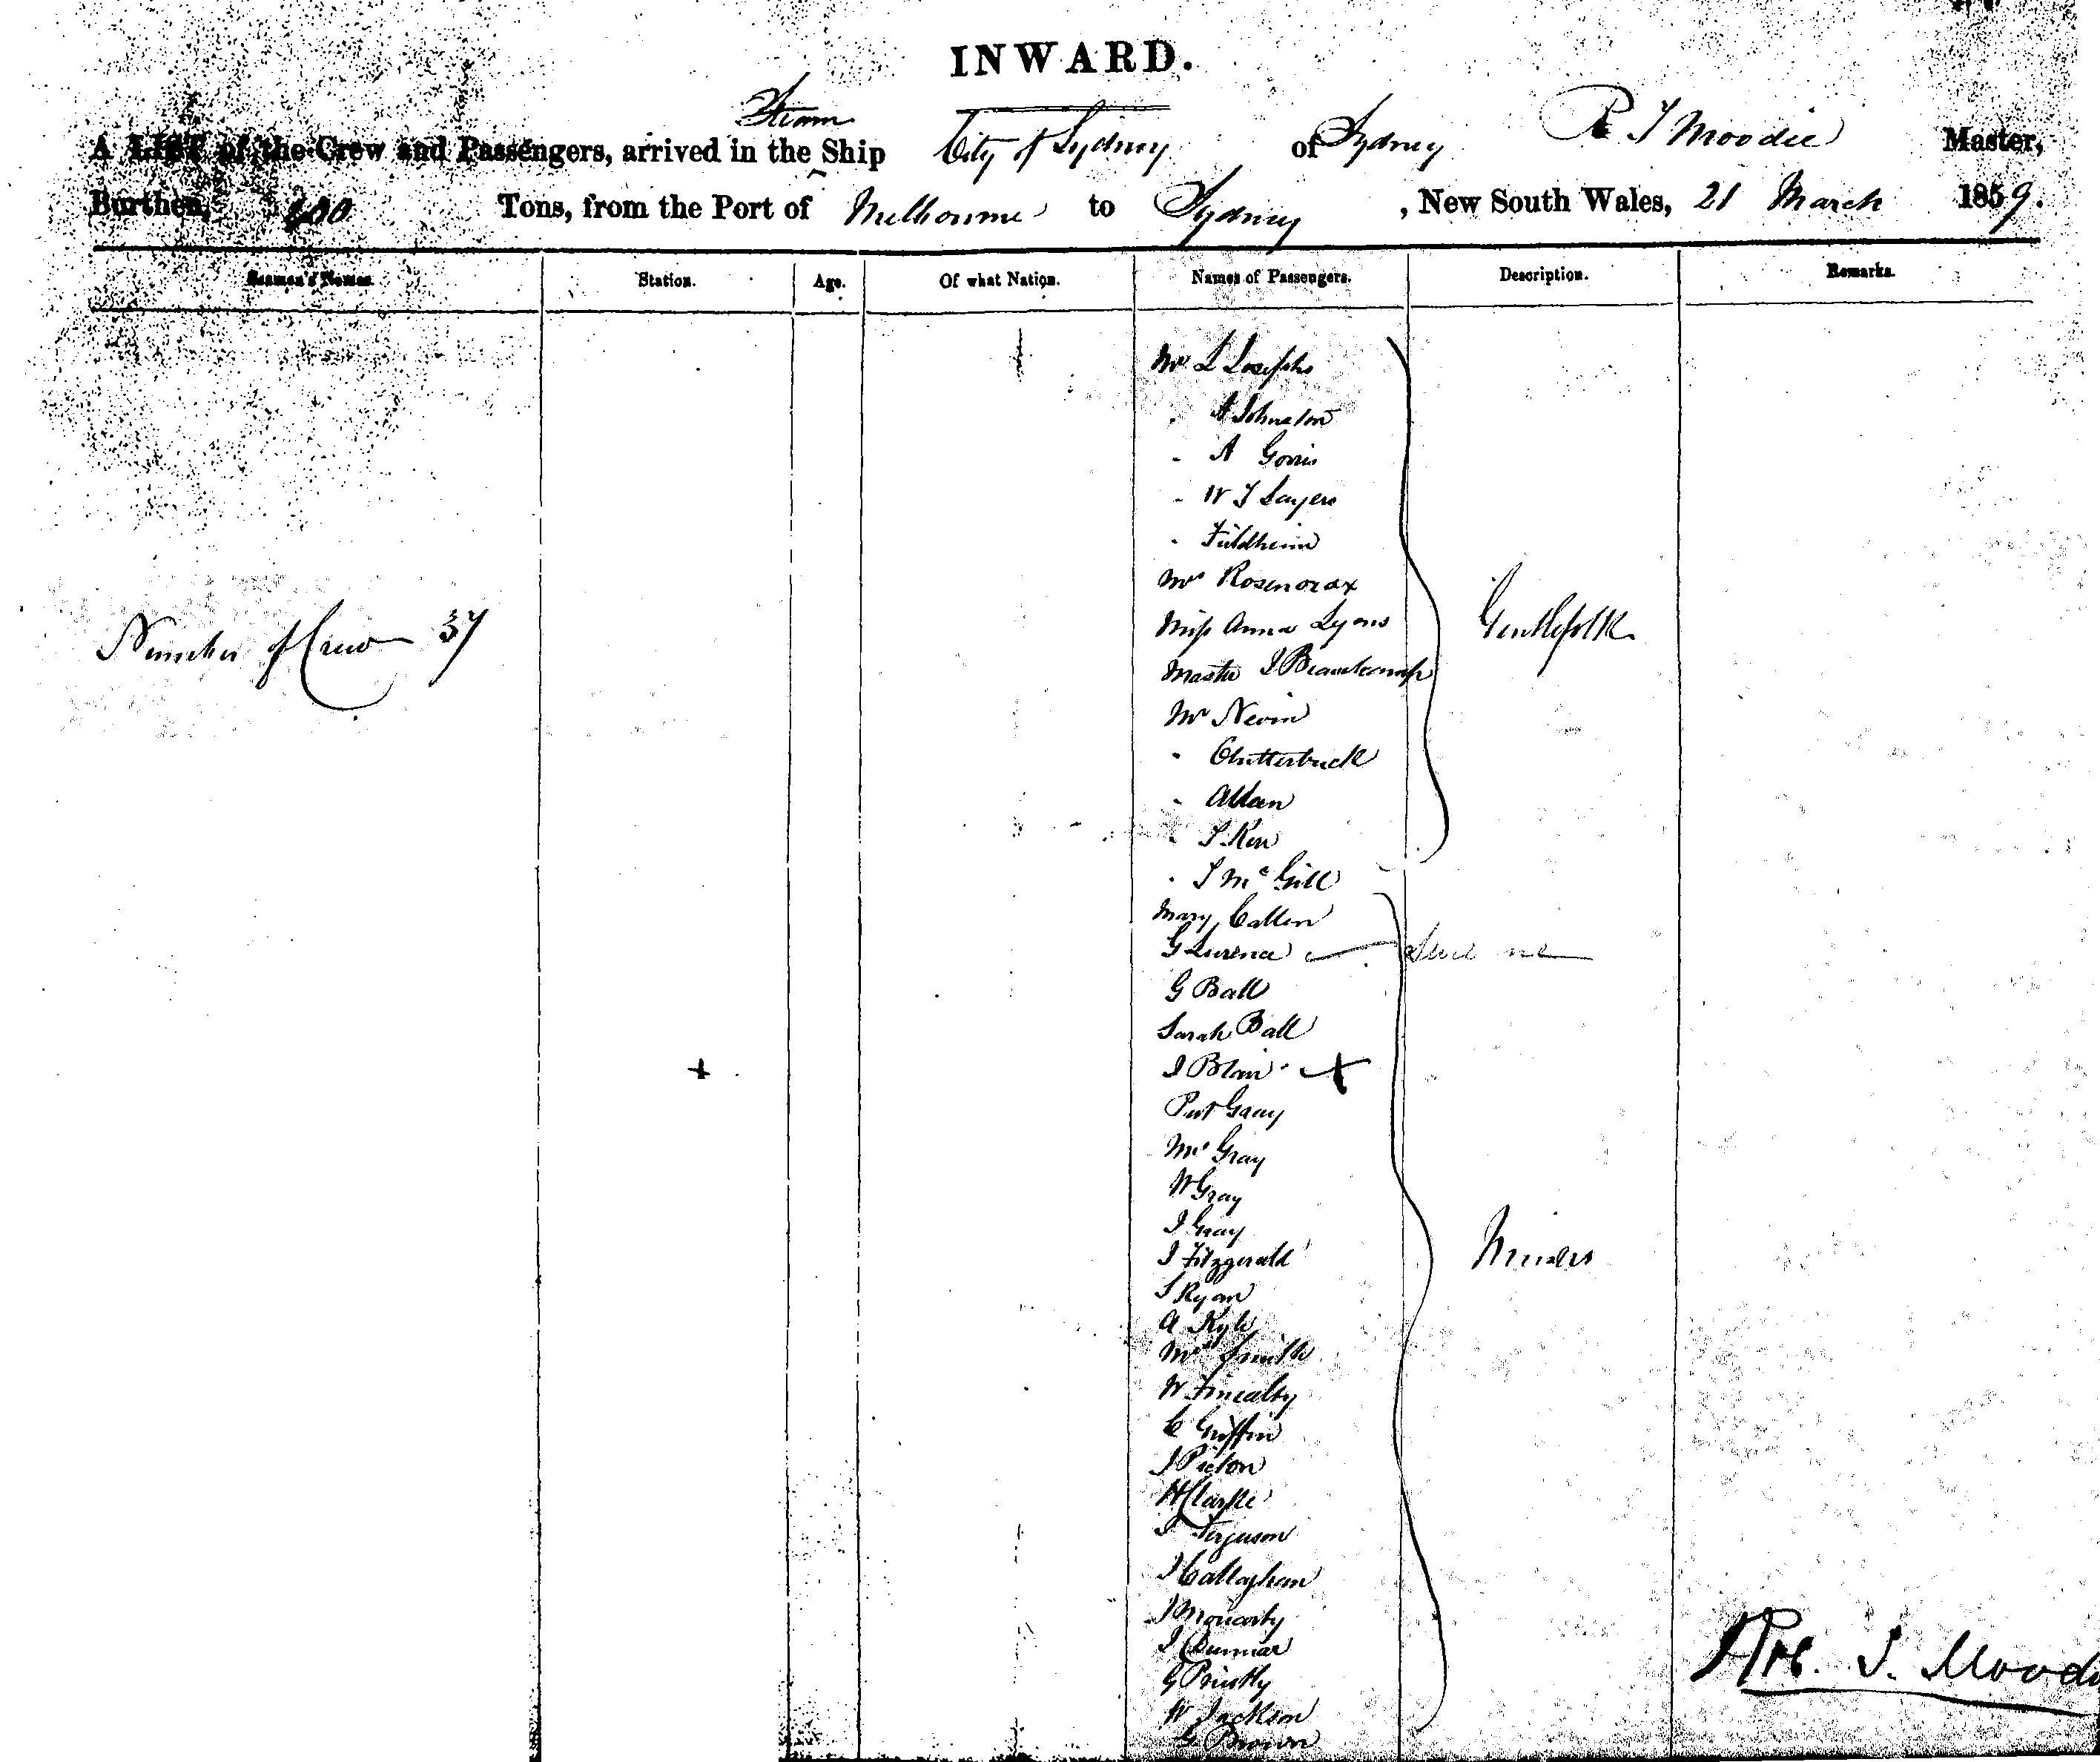 INWARD.
Steam
A LIST of the Crew and Passengers, arrived in the Ship City of Sydney of Sydney R T Moodie Master,
Burthen, 600 Tons, from the Port of Melbourne to Sydney, New South Wales, 21 March 1859.
Seamen's Names. Station. Age. Of what Nation. Names of Passengers. Description. Remarks.
Mr L Josephs
" A Johnston
" A Gorris
" W T Sayers
" Fieldheim
Miss Anna Lyons
Gentlefolk
Number of Crew 37
Master J Beauchamp
Mr Nevin
" Clutterbuck
" Allan
" J Kerr
" J McGill
Mary Callen
G
G Ball
Sarah Ball
J Blair
Pat Gray
Mrs Gray
W Gray
J Gray
J Fitzgerald
Miners
J Ryan
A Kyle
Mrs Smith
W
C Griffin
J Picton
H Clarke
J Ferguson
J Callaghan
J Moriarty
J
G Priestly
Moodie
W Jackson
G Brown